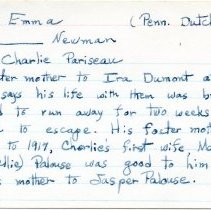 Emma (Penn. Dutch
Newman
Charlie Pariseau
ter mother to Ira Dumont a
says his life with them was b
d to run away for two weeks
to escape. His foster moth
to 1917, Charlie's first wife, Ma
llie) Palouse was good to him
s mother to Jasper Palouse.